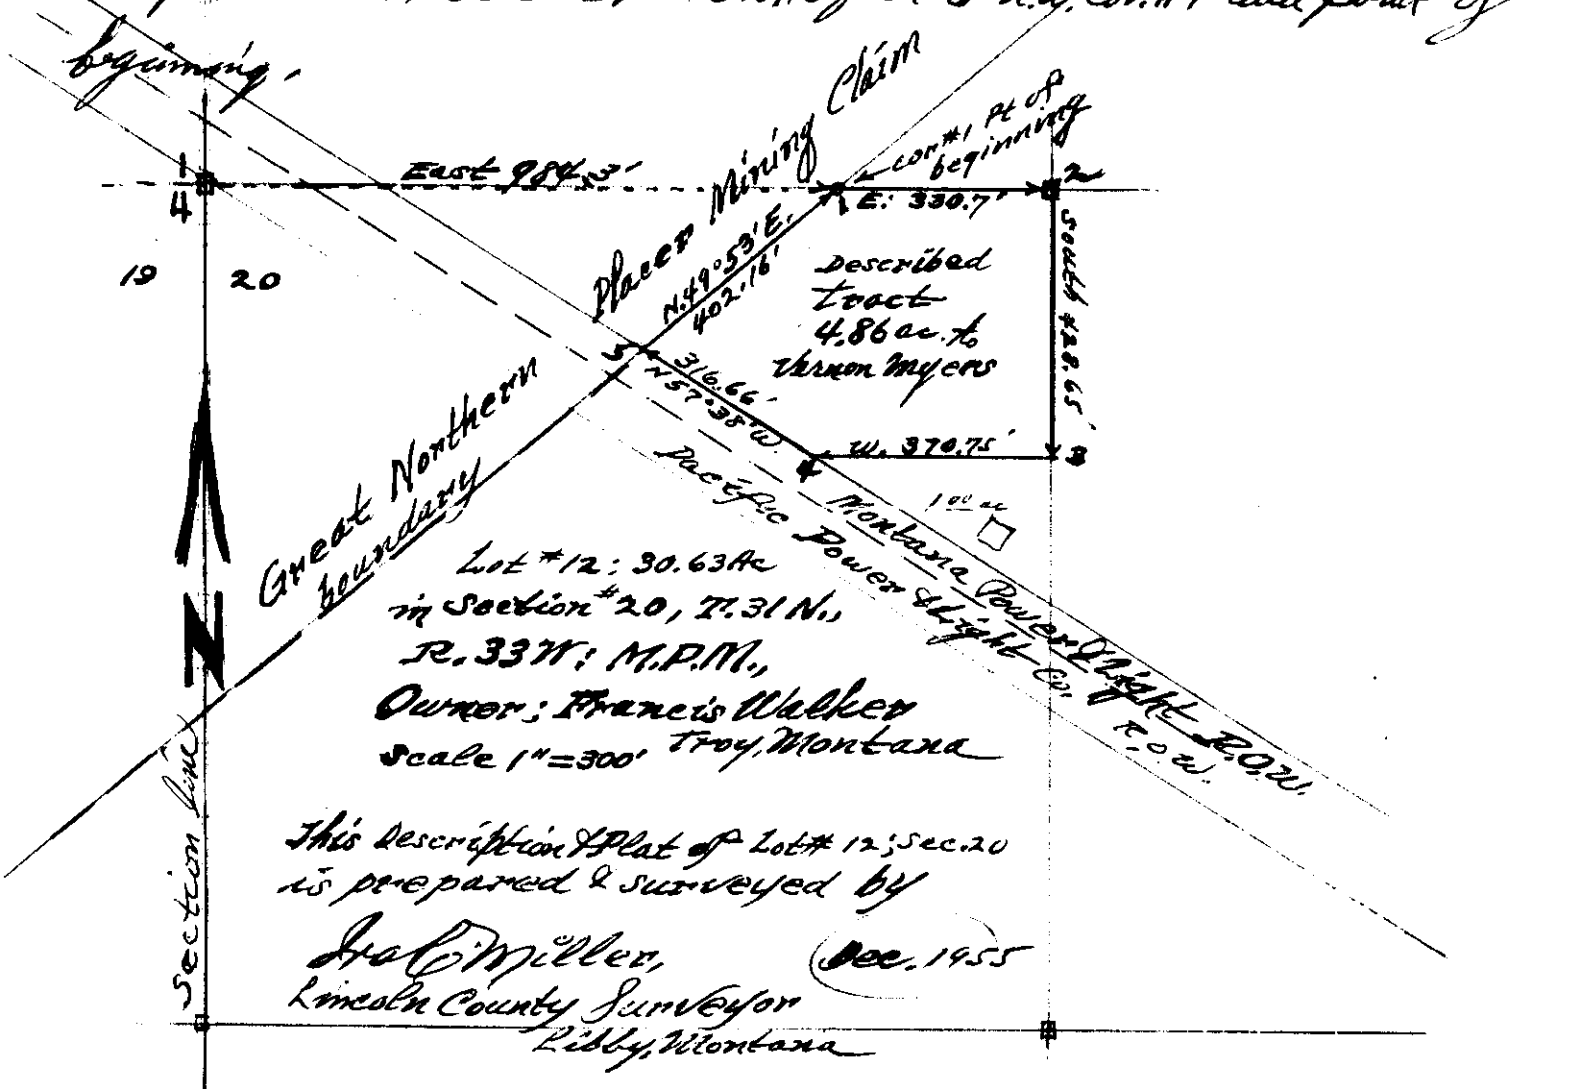 and point of
beginning.
1/4
East 984.3'
Placer Mining Claim
cor #1 Pt of
beginning
2
1
E. 330.7'
N.49°53'E.
402.16'
19 20
Described
tract
4.86 ac. to
Vernon Myers
South 428.65'
5
316.66'
N57°38'W.
W. 370.75'
3
4
Great Northern
boundary
Pacific Power & Light Co. R.O.W.
Montana Power & Light R.O.W.
1.00 ac
Lot #12: 30.63Ac
in Section #20, T.31N.,
R.33W: M.P.M.,
Owner: Francis Walker
Troy, Montana
Scale 1"=300'
N
Section line
This Description & Plat of Lot# 12; Sec.20
is prepared & surveyed by
Ira C. Miller,
Dec. 1955
Lincoln County Surveyor
Libby, Montana